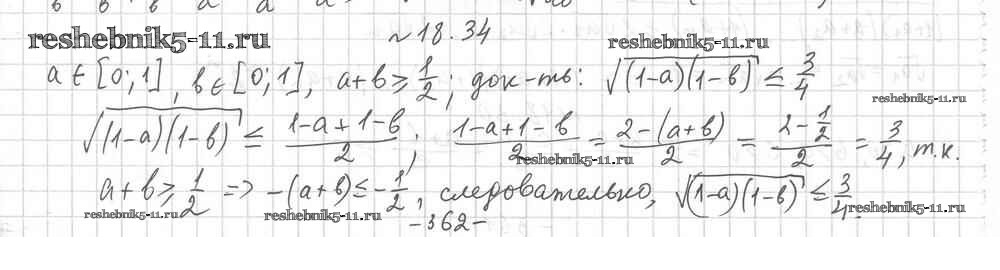 reshebnik5-11.ru
№18.34
reshebnik5-11.ru
a ∈ [0; 1], b ∈ [0; 1], a+b ≥ 1/2; док-ть: √((1-a)(1-b)) ≤ 3/4
reshebnik5-11.ru
√((1-a)(1-b)) ≤ (1-a+1-b)/2; (1-a+1-b)/2 = (2-(a+b))/2 = (2-1/2)/2 = 3/4, т.к.
reshebnik5-11.ru
a+b ≥ 1/2 => -(a+b) ≤ -1/2, следовательно, √((1-a)(1-b)) ≤ 3/4.
reshebnik5-11.ru
reshebnik5-11.ru
reshebnik5-11.ru
-362-